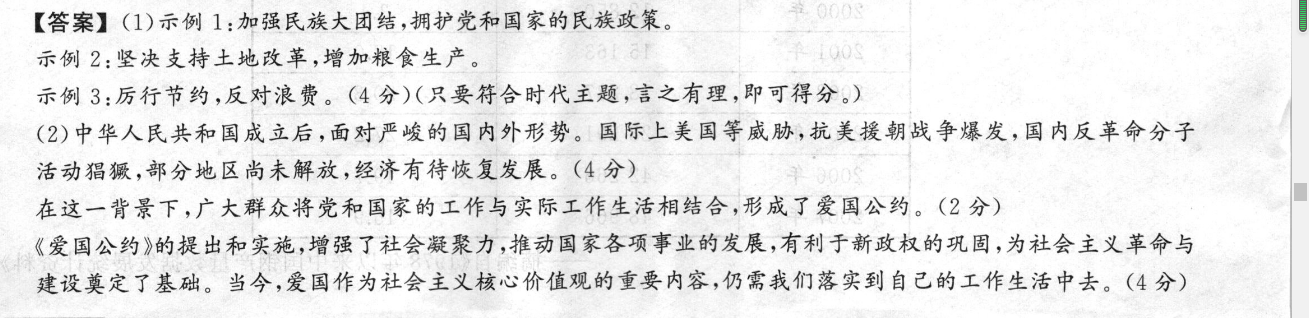 【答案】(1)示例1:加强民族大团结,拥护党和国家的民族政策。
示例2:坚决支持土地改革,增加粮食生产。
示例3:厉行节约,反对浪费。(4分)(只要符合时代主题,言之有理,即可得分。)
(2)中华人民共和国成立后,面对严峻的国内外形势。国际上美国等威胁,抗美援朝战争爆发,国内反革命分子
活动猖獗,部分地区尚未解放,经济有待恢复发展。(4分)
在这一背景下,广大群众将党和国家的工作与实际工作生活相结合,形成了爱国公约。(2分)
《爱国公约》的提出和实施,增强了社会凝聚力,推动国家各项事业的发展,有利于新政权的巩固,为社会主义革命与
建设奠定了基础。当今,爱国作为社会主义核心价值观的重要内容,仍需我们落实到自己的工作生活中去。(4分)